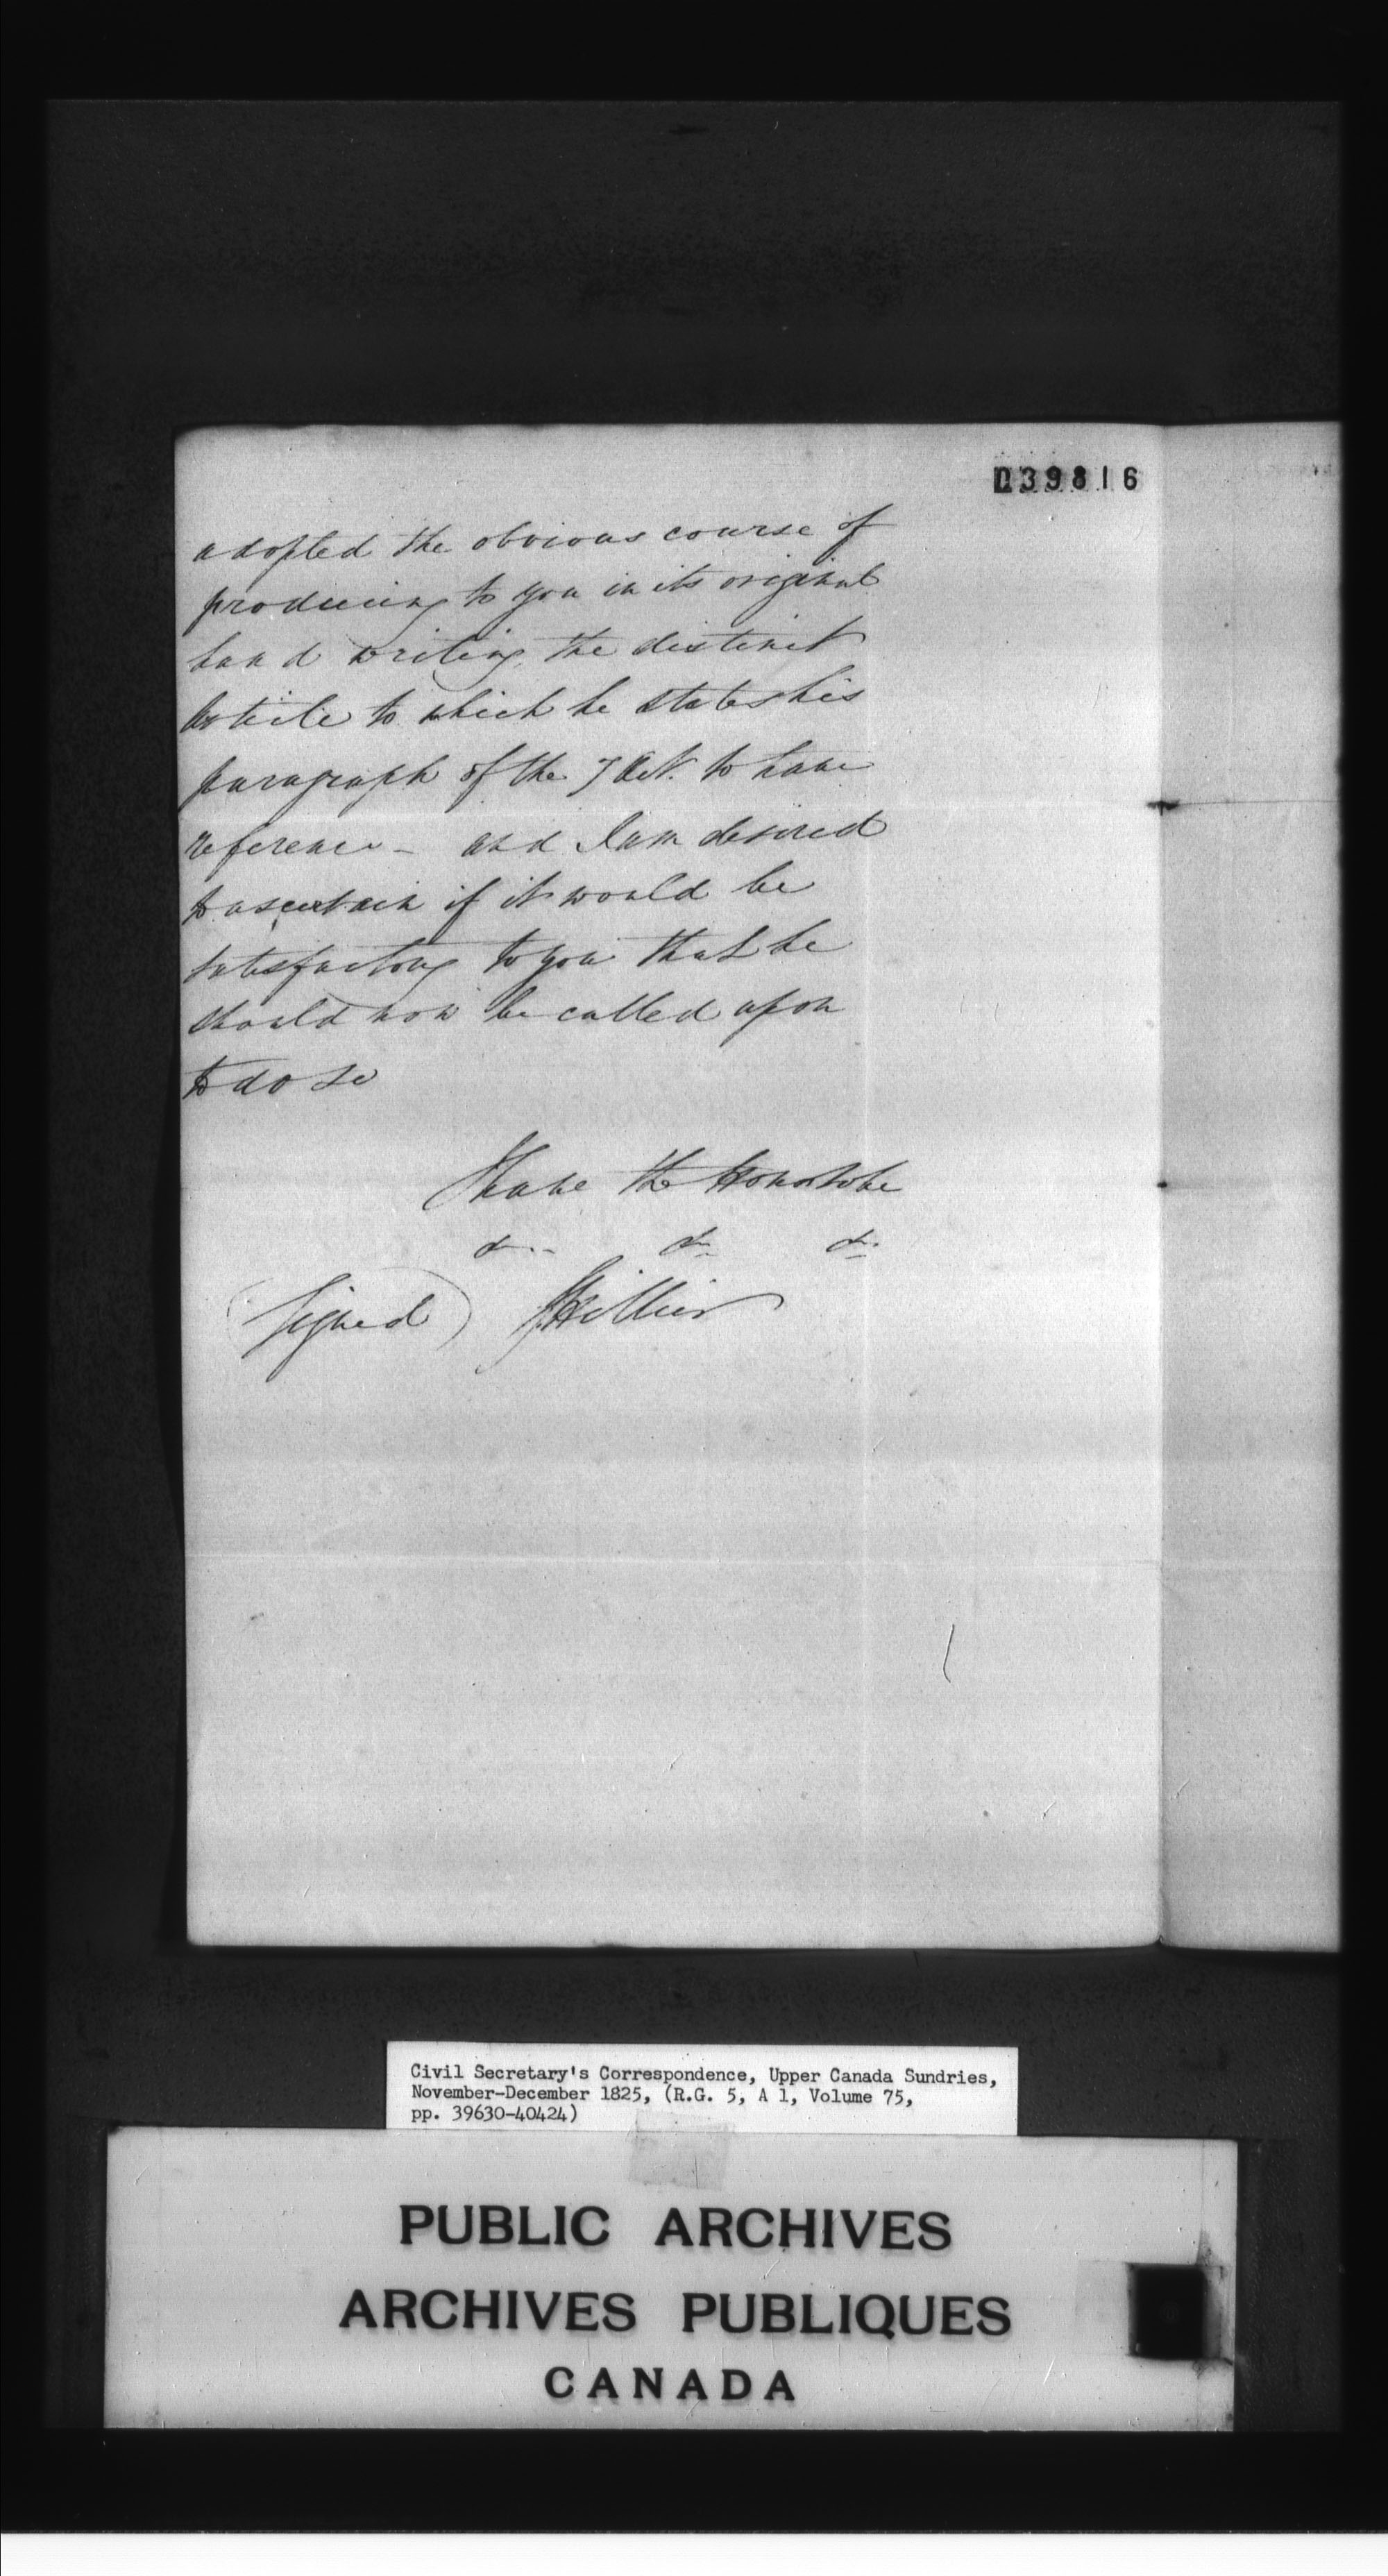 039816
adopted the obvious course of
producing to you in its original
hand writing the distinct
Article to which he states his
paragraph of the 7 Oct. to have
reference - and I am desired
to ascertain if it would be
satisfactory to you that he
should now be called upon
to do so
I have the Honor to be
&c. &c. &c.
(Signed) GHillier
Civil Secretary's Correspondence, Upper Canada Sundries,
November-December 1825, (R.G. 5, A 1, Volume 75,
pp. 39630-40424)
PUBLIC ARCHIVES
ARCHIVES PUBLIQUES
CANADA